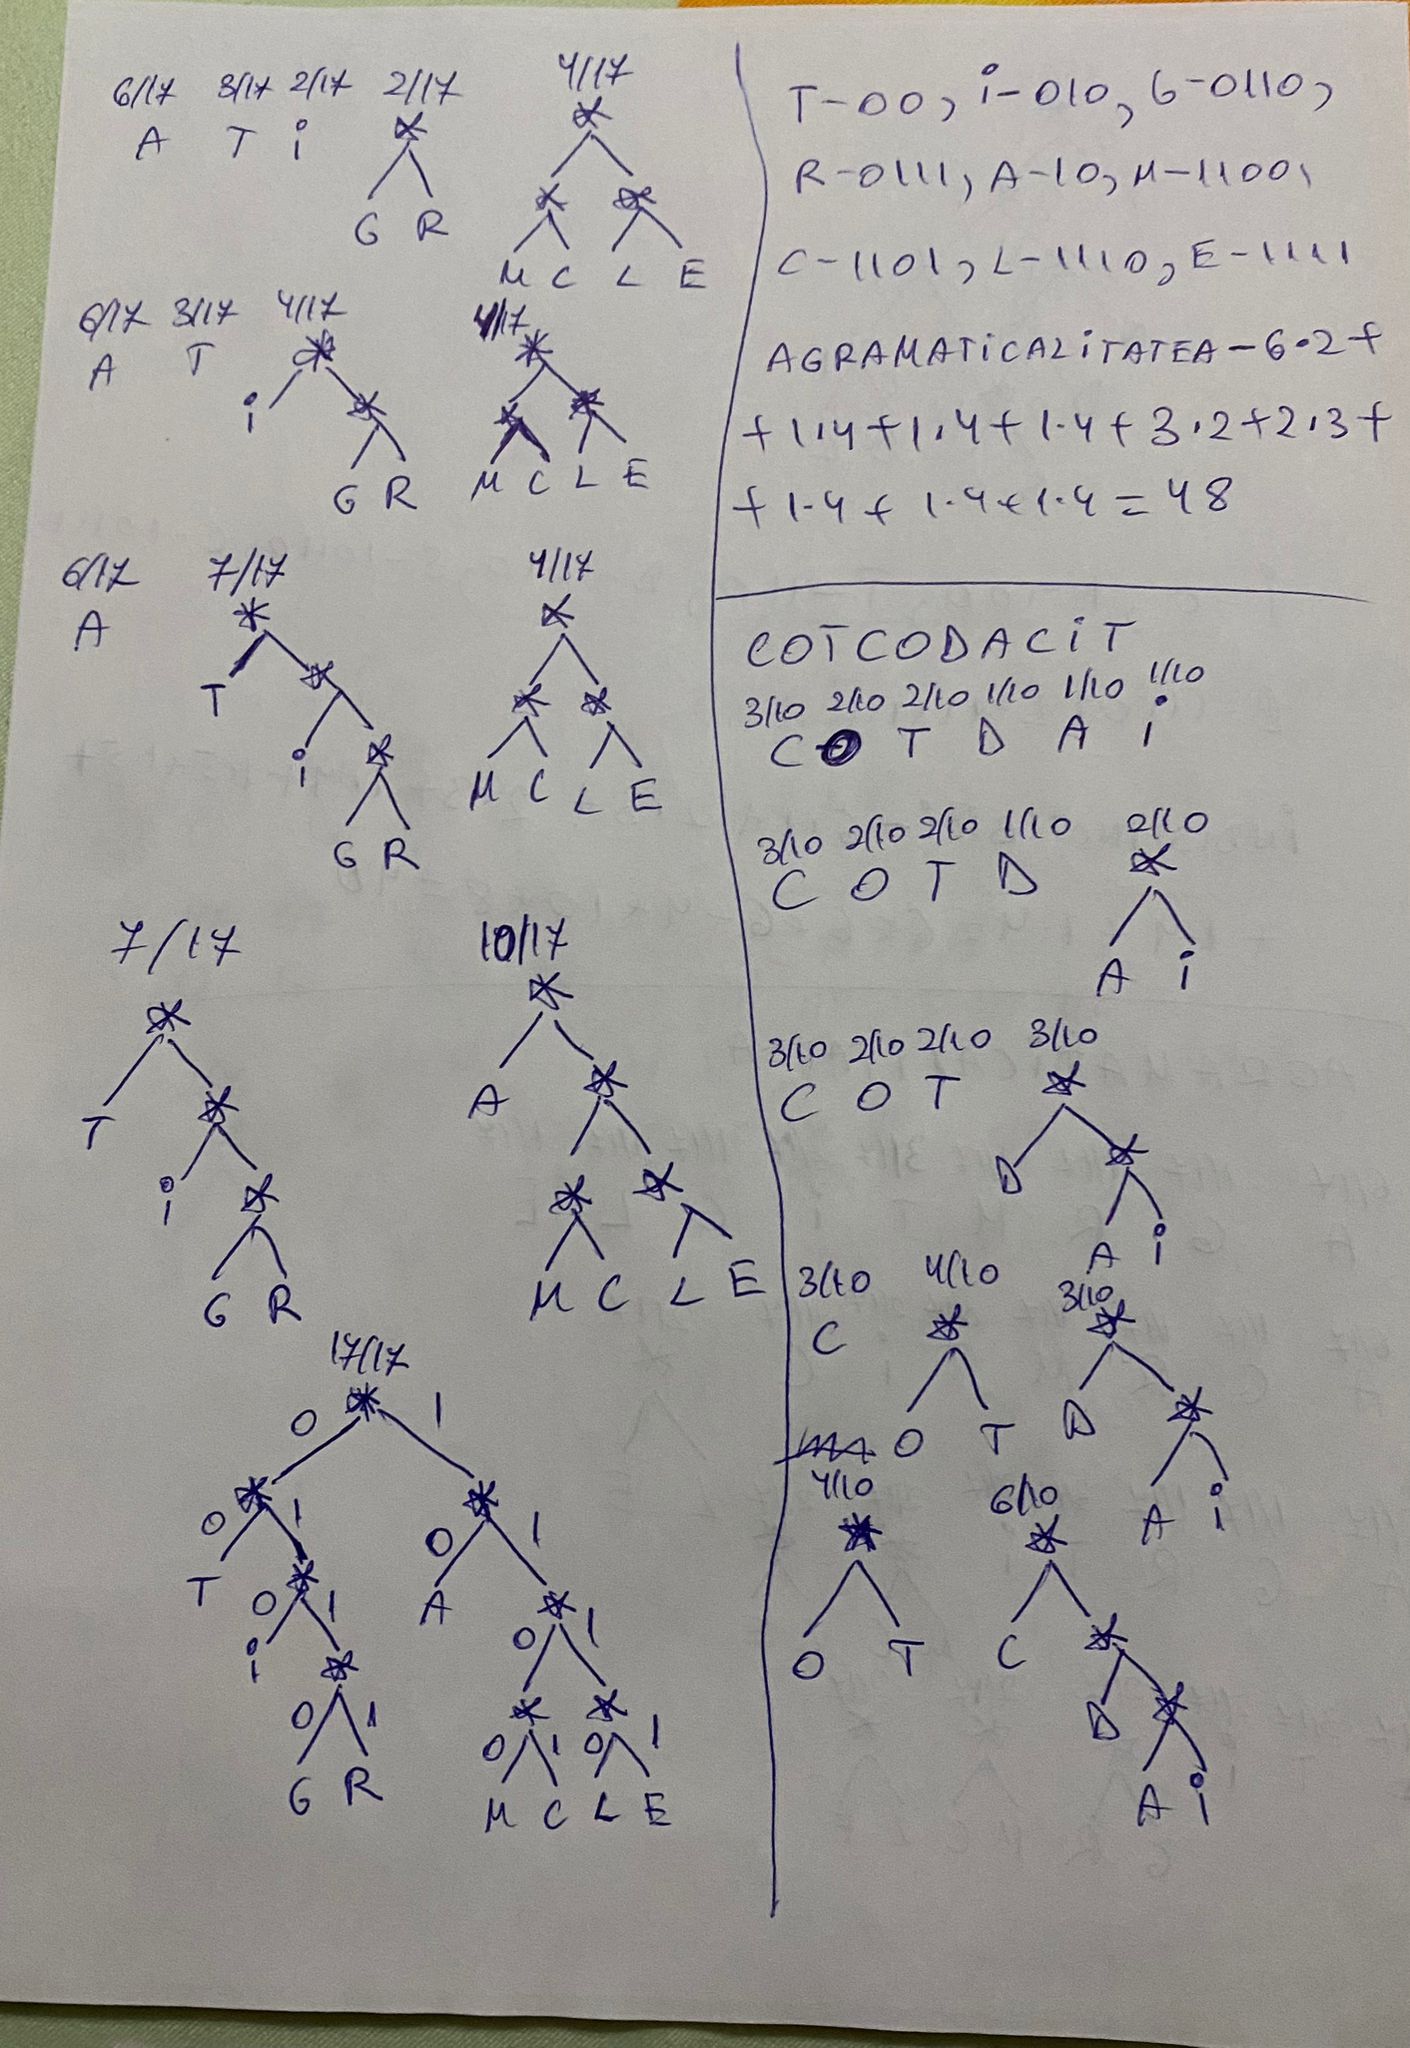 6/17 3/17 2/17 2/17 4/17
A T i *
*
G R
* *
M C L E
6/17 3/17 4/17 4/17
A T * *
i * * *
G R M C L E
6/17 7/17 4/17
A * *
T * * *
i * M C L E
G R
7/17 10/17
* *
T * A *
i * * *
G R M C L E
17/17
*
0 1
* *
0 1 0 1
T * A *
0 1 0 1
i * * *
0 1 0 1 0 1
G R M C L E
T-00, i-010, G-0110,
R-0111, A-10, M-1100,
C-1101, L-1110, E-1111
AGRAMATiCALiTATEA-6·2+
+1·4+1·4+1·4+3·2+2·3+
+1·4+1·4+1·4=48
COTCODACiT
3/10 2/10 2/10 1/10 1/10 1/10
C O T D A i
3/10 2/10 2/10 1/10 2/10
C O T D *
A i
3/10 2/10 2/10 3/10
C O T *
D *
A i
3/10 4/10 3/10
C * *
O T D *
A i
4/10 6/10
* *
O T C *
D *
A i